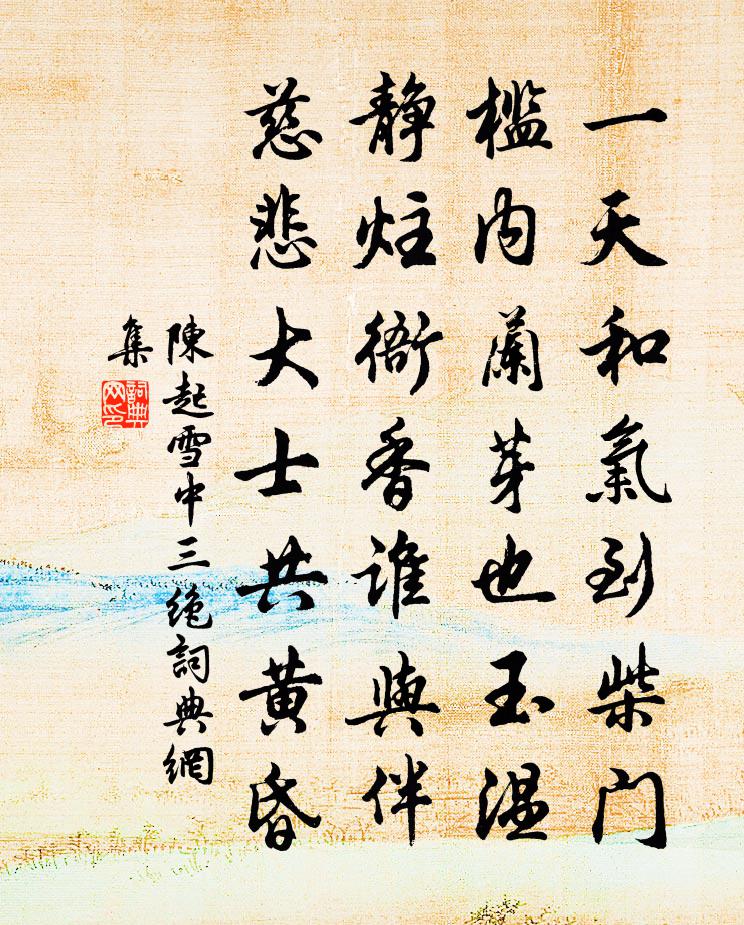 一天和氣到柴門
檻内蘭芽也玉温
靜炷衙香誰與伴
慈悲大士共黃昏
陳起雪中三絶詞典網
集
詞典
网印